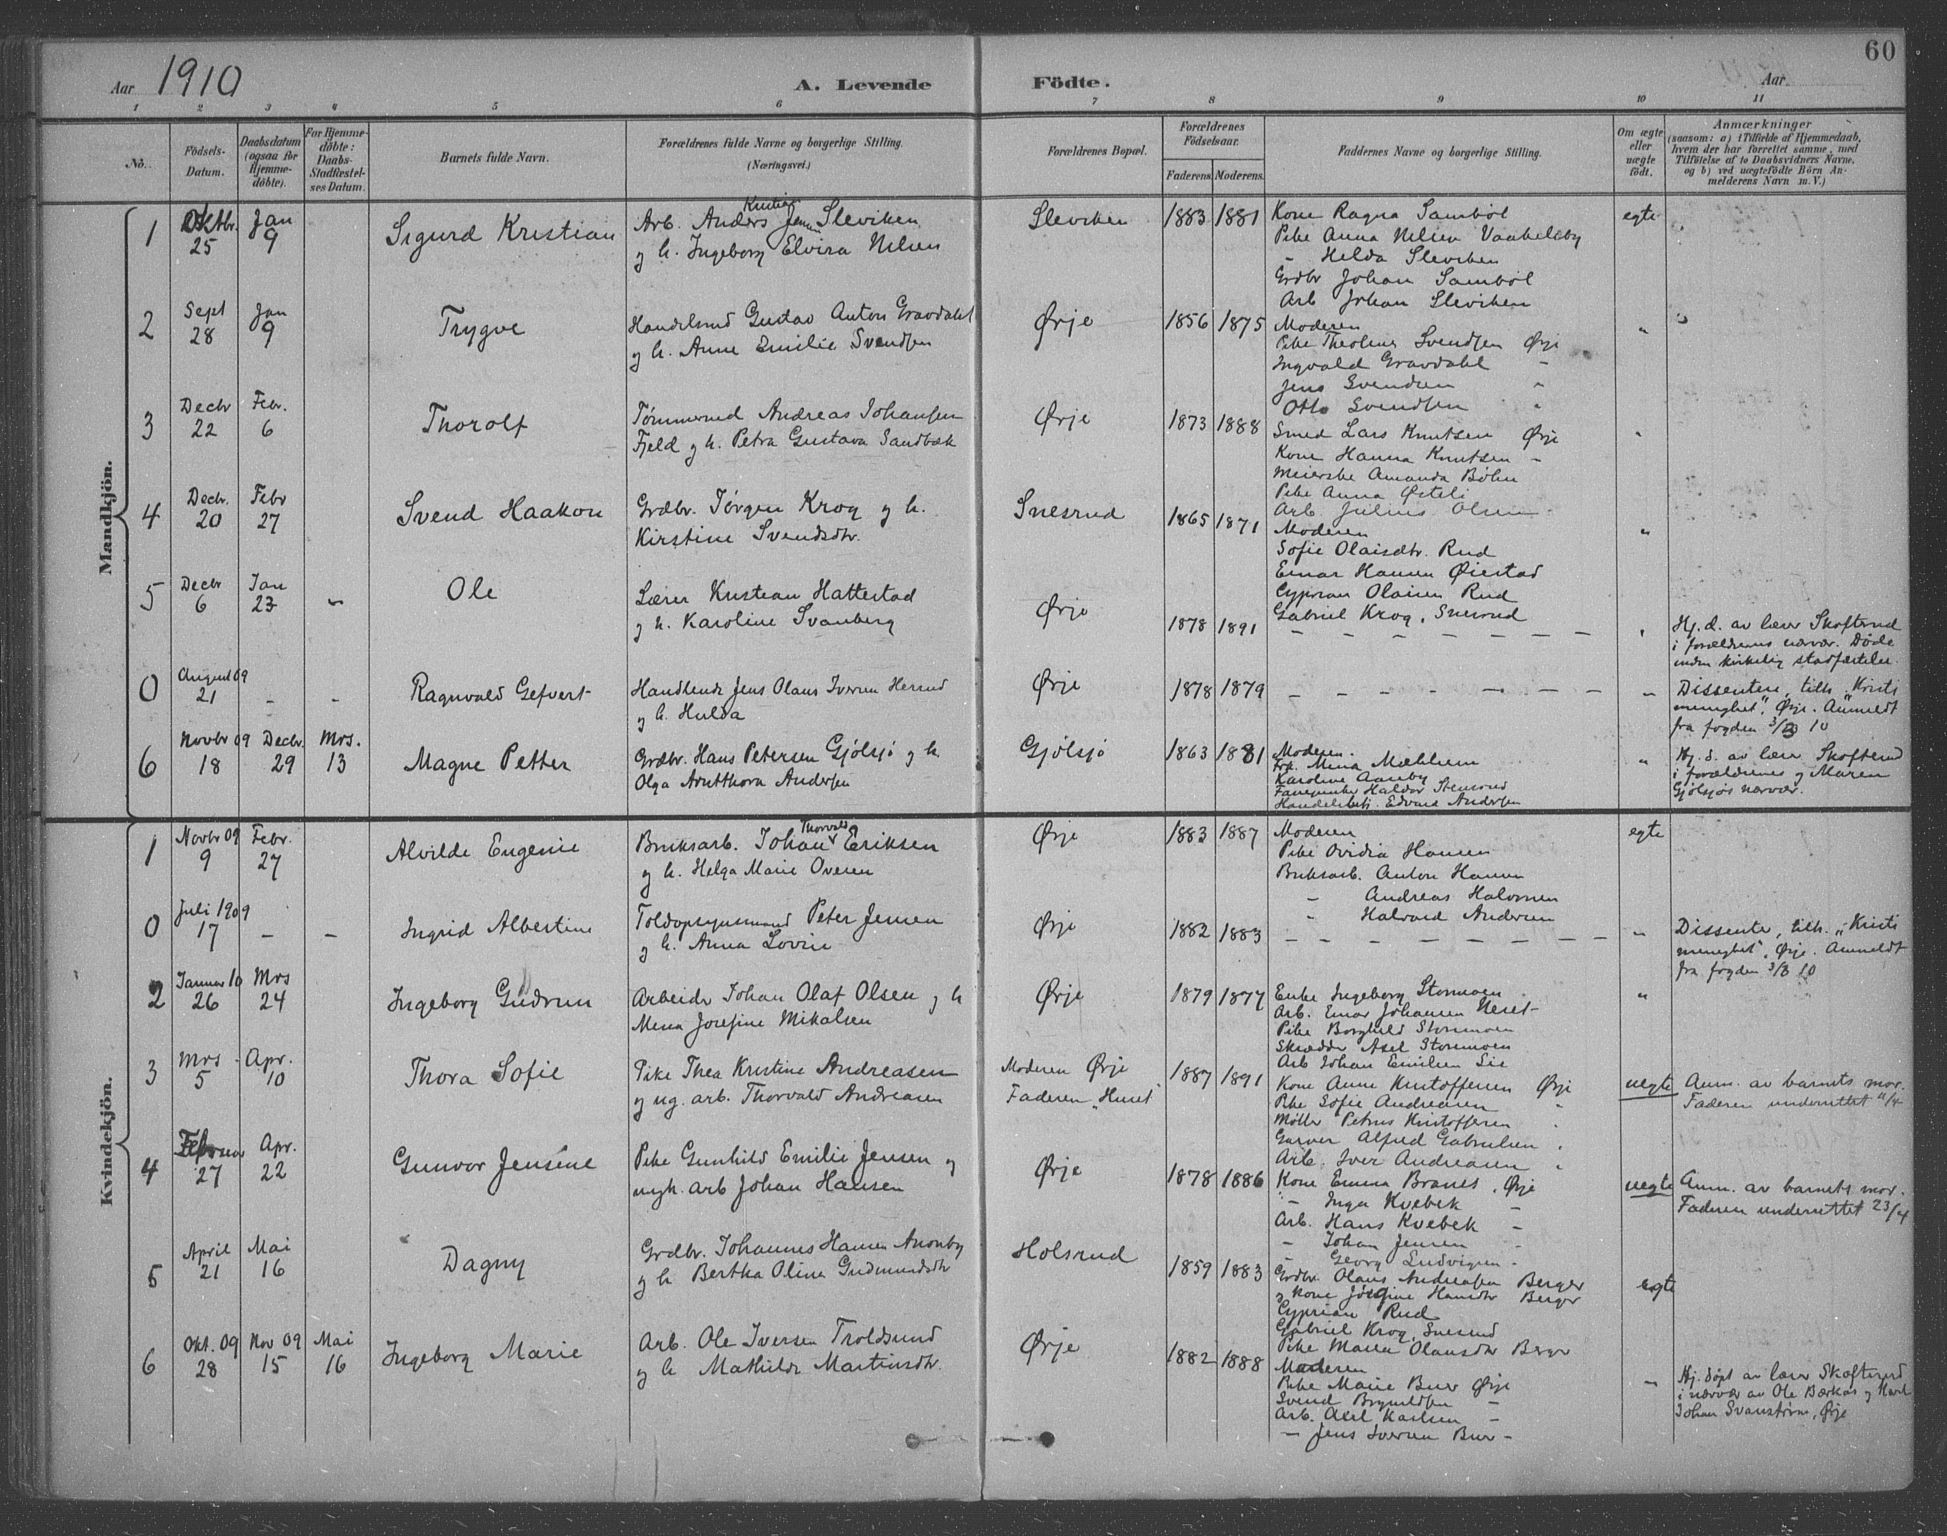 60
Aar 1910 A. Levende Födte. Aar
1 2 3 4 5 6 7 8 9 10 11
No. Födsels-Datum. Daabsdatum (ogsaa for Hjemmedöbte). For Hjemmedöbte: Daabs-Stadfæstelses Datum. Barnets fulde Navn. Forældrenes fulde Navne og borgerlige Stilling. (Næringsvei.) Forældrenes Bopæl. Forældrenes Födselsaar. Faderens. Moderens. Faddernes Navne og borgerlige Stilling. Om ægte eller uægte födt. Anmærkninger (saasom: a) i Tilfælde af Hjemmedaab, hvem der har forrettet samme, med Tilföielse af to Daabsvidners Navne, og b) ved uægtefödte Börn Anmelderens Navn m. V.)
Mandkjön.
1 Oktbr. 25 Jan 9 Sigurd Kristian
Arb. Anders Kristian Jensen Sleviken
og h. Ingeborg Elvira Nilsen
Sleviken 1883 1881
Kone Ragna Sambøl
Pike Anna Nilsen Vaabelsby
" Helda Sleviken
Grdbr Johan Sambøl
Arb Johan Sleviken
egte
2 Sept 28 Jan 9 Trygve
Handelsmd Gustav Anton Gravdahl
og h. Anne Emilie Svendsen
Ørje 1856 1875
Moderen
Pike Theoline Svendsen Ørje
Ingvald Gravdahl "
Jens Svendsen "
Otto Svendsen "
"
3 Decbr 22 Febr. 6 Thorolf
Tømmermd Andreas Johansen
Fjeld og h. Petra Gustava Sandbæk
Ørje 1873 1888
Smed Lars Knutsen Ørje
Kone Hanna Knutsen "
Meierske Amanda Bøhn
Pike Anna Østeli
Arb. Julius Olsen
"
4 Decbr. 20 Febr 27 Svend Haakon
Grdbr. Jørgen Krog og h.
Kirstine Svendsdtr.
Snesrud 1865 1871
Moderen
Sofie Olaisdtr. Rud
Einar Hansen Øiestad
Cyprian Olaisen Rud
Gabriel Krog, Snesrud
"
5 Decbr 6 Jan 23 " Ole
Lærer Kristian Hattestad
og h. Karoline Svanberg
Ørje 1878 1891
– – – – – – – –
"
Hj. d. av lærer Skofterud
i forældrenes nærvær. Døde
inden kirkelig stadfæstelse.
0 August 09 21 – – Ragnvald Gefvert
Handlende Jens Olaus Iversen Herrud
og h. Hulda
Ørje 1878 1879
– – – – – – – –
"
Dissenter, tilh. "Kristi
menighet", Ørje. Anmeldt
fra fogden 3/3 10
6 Novbr 09 18 Decbr. 29 Mrs. 13 Magne Petter
Grdbr. Hans Petersen Gjølsjø og h.
Olga Arntthora Andersen
Gjølsjø 1863 1881
Moderen.
Frk. Mina Mæhlum
Karoline Aaseby
Fanejunker Haldor Stensrud
Handelsbetj. Edvard Andersen
"
Hj. d. av lærer Skofterud
i forældrenes og Maren
Gjølsjøs nærvær.
Kvindekjön.
1 Novbr 09 9 Febr. 27 Alvilde Eugenie
Bruksarb. Johan Thorvald Eriksen
og h. Helga Marie Oversen
Ørje 1883 1887
Moderen
Pike Ovidia Hansen
Bruksarb. Anton Hansen
" Andreas Halvorsen
" Halvard Andersen
egte
0 Juli 1909 17 – – Ingrid Albertine
Toldopsynsmand Peter Jensen
og h. Anna Lovise
Ørje 1882 1883
– – – – – – – –
"
Dissenter, tilh. "Kristi
menighet", Ørje. Anmeldt
fra fogden 3/3 10
2 Januar 10 26 Mrs 24 Ingeborg Gudrun
Arbeider Johan Olaf Olsen og h
Mena Josefine Mikalsen
Ørje 1879 1877
Enke Ingeborg Stormoen
Arb. Einar Johansen Neset
Pike Borghild Stormoen
Skrædder Axel Stormoen
Arb Johan Emilien Lie
"
3 Mrs 5 Apr. 10 Thora Sofie
Pike Thea Kristine Andreasen
og ug. arb. Thorvald Andreasen
Moderen Ørje
Faderen "Huset"
1887 1891
Kone Anne Kristoffersen Ørje
Pike Sofie Andreasen "
Møller Petrus Kristoffersen "
Garver Alfred Gabrielsen "
Arb. Iver Andreasen "
uegte
Anm. av barnets mor.
Faderen underrettet 11/4
4 Februar 27 Apr. 22 Gunvor Jensine
Pike Gunhild Emilie Jensen og
ungk. arb Johan Hansen
Ørje 1878 1886
Kone Emma Branes, Ørje
" Inga Kvebek "
Arb. Hans Kvebek "
" Johan Jensen "
" Georg Ludvigsen "
uegte
Anm. av barnets mor.
Faderen underrettet 23/4
5 April 21 Mai 16 Dagny
Grdbr. Johannes Hansen Aronby
og h Bertha Oline Gudmundsdtr
Holsrud 1859 1883
Grdbr. Olaus Andreasen Berger
og kone Josefine Hansdtr Berger
Cyprian Rud
Gabriel Krog, Snesrud
Pike Maria Olausdtr Berger
egte
6 Okt. 09 28 Nov 09 15 Mai 16 Ingeborg Marie
Arb. Ole Iversen Troldsund
og h Mathilde Martinsdtr.
Ørje 1882 1888
Moderen
Pike Marie Buer Ørje
Svend Brynildsen "
Arb. Axel Karlsen "
" Jens Iversen Buer "
"
Hj. døpt av lærer Skofterud
i nærvær av Ole Bærkås og
Johan Svanstrøm, Ørje